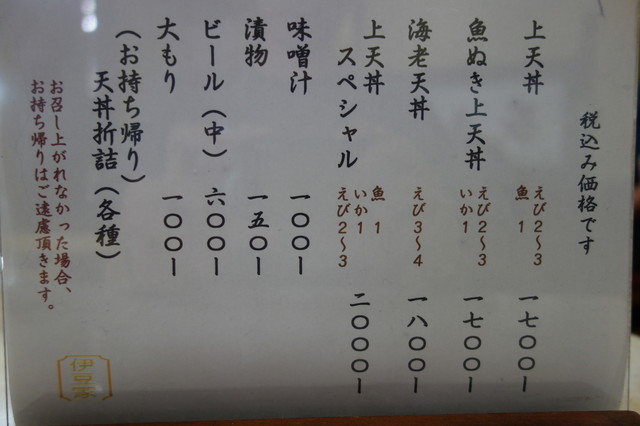 税込み価格です
上天丼 えび2〜3 魚 1 一七〇〇ー
魚ぬき上天丼 えび2〜3 いか1 一七〇〇ー
海老天丼 えび3〜4 一八〇〇ー
上天丼
スペシャル 魚 1 いか1 えび2〜3 二〇〇〇ー
味噌汁 一〇〇ー
漬物 一五〇ー
ビール(中) 六〇〇ー
大もり 一〇〇ー
(お持ち帰り)
天丼折詰(各種)
お召し上がれなかった場合、
お持ち帰りはご遠慮頂きます。
伊豆家